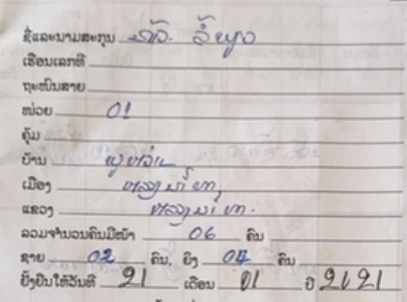 ຊື່ແລະນາມສະກຸນ
ເຮືອນເລກທີ
ຖະໜົນສາຍ
ໜ່ວຍ 01
ຄຸ້ມ
ບ້ານ
ເມືອງ ຫລວງນ້ຳທາ
ແຂວງ ຫລວງນ້ຳທາ.
ລວມຈຳນວນຄົນມີໜ້າ 06 ຄົນ
ຊາຍ 02 ຄົນ, ຍິງ 04 ຄົນ
ຢັ້ງຢືນໃຫ້ວັນທີ 21 ເດືອນ 01 ປີ 2121